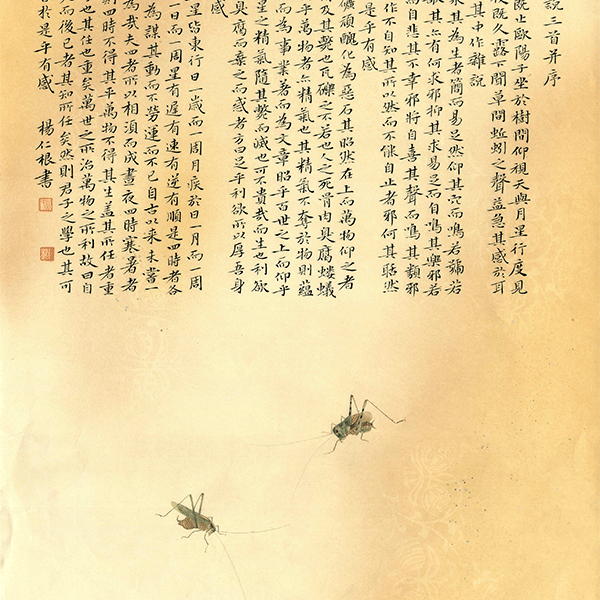 說三首并序
既止歐陽子坐於樹間仰視天與月星行度見
既久露下聞草間蚯蚓之聲益急其感於耳
其中作雜說
其為生者簡而易足然仰其穴而鳴若號若
其亦有何求邪抑其求易足而自鳴其樂邪若
而自悲其不幸邪將自喜其聲而鳴其類邪
作不自知其所以然而不能自止者邪何其聒然
是乎有感
礦頑醜化為惡石其昭然在上而萬物仰之者
及其斃也瓦礫之不若也人之死骨肉臭腐螻蟻
乎萬物者亦精氣也其精氣不奪於物則蘊
而為事業著而為文章昭乎百世之上而仰乎
星之精氣隨其斃而滅也可不貴哉而生也利欲
臭腐而棄之而惑者方曰足乎利欲所以厚吾身
感
星皆東行日一歲而一周月疾於日一月而一周
一日而一周星有遲有速有逆有順是四者各
為謀其動而不勞運而不已自古以來未嘗一
為哉夫四者所以相須而成晝夜四時寒暑者
則四時不得其平萬物不得其生蓋其所任者重
也其任也重矣萬世之所治萬物之所利故曰自
死而後已者其知所任矣然則君子之學也其可
於是乎有感 楊仁根書